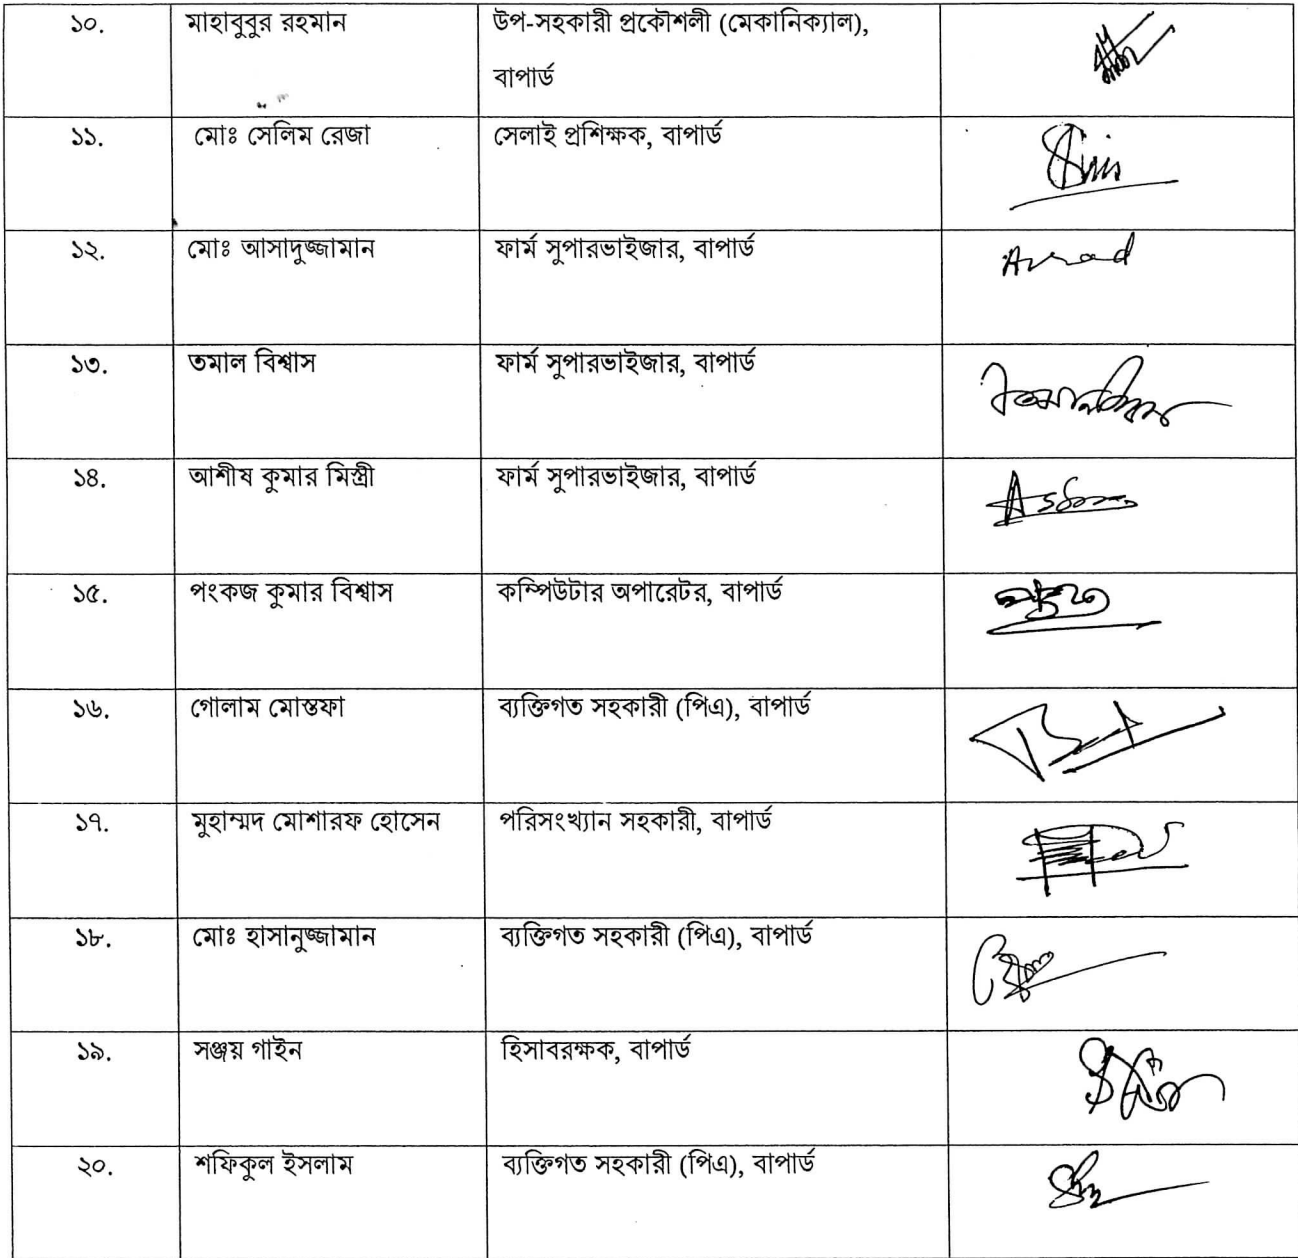 ১০. মাহাবুবুর রহমান উপ-সহকারী প্রকৌশলী (মেকানিক্যাল),
বাপার্ড
১১. মোঃ সেলিম রেজা সেলাই প্রশিক্ষক, বাপার্ড
১২. মোঃ আসাদুজ্জামান ফার্ম সুপারভাইজার, বাপার্ড
১৩. তমাল বিশ্বাস ফার্ম সুপারভাইজার, বাপার্ড
১৪. আশীষ কুমার মিস্ত্রী ফার্ম সুপারভাইজার, বাপার্ড
১৫. পংকজ কুমার বিশ্বাস কম্পিউটার অপারেটর, বাপার্ড
১৬. গোলাম মোস্তফা ব্যক্তিগত সহকারী (পিএ), বাপার্ড
১৭. মুহাম্মদ মোশারফ হোসেন পরিসংখ্যান সহকারী, বাপার্ড
১৮. মোঃ হাসানুজ্জামান ব্যক্তিগত সহকারী (পিএ), বাপার্ড
১৯. সঞ্জয় গাইন হিসাবরক্ষক, বাপার্ড
২০. শফিকুল ইসলাম ব্যক্তিগত সহকারী (পিএ), বাপার্ড